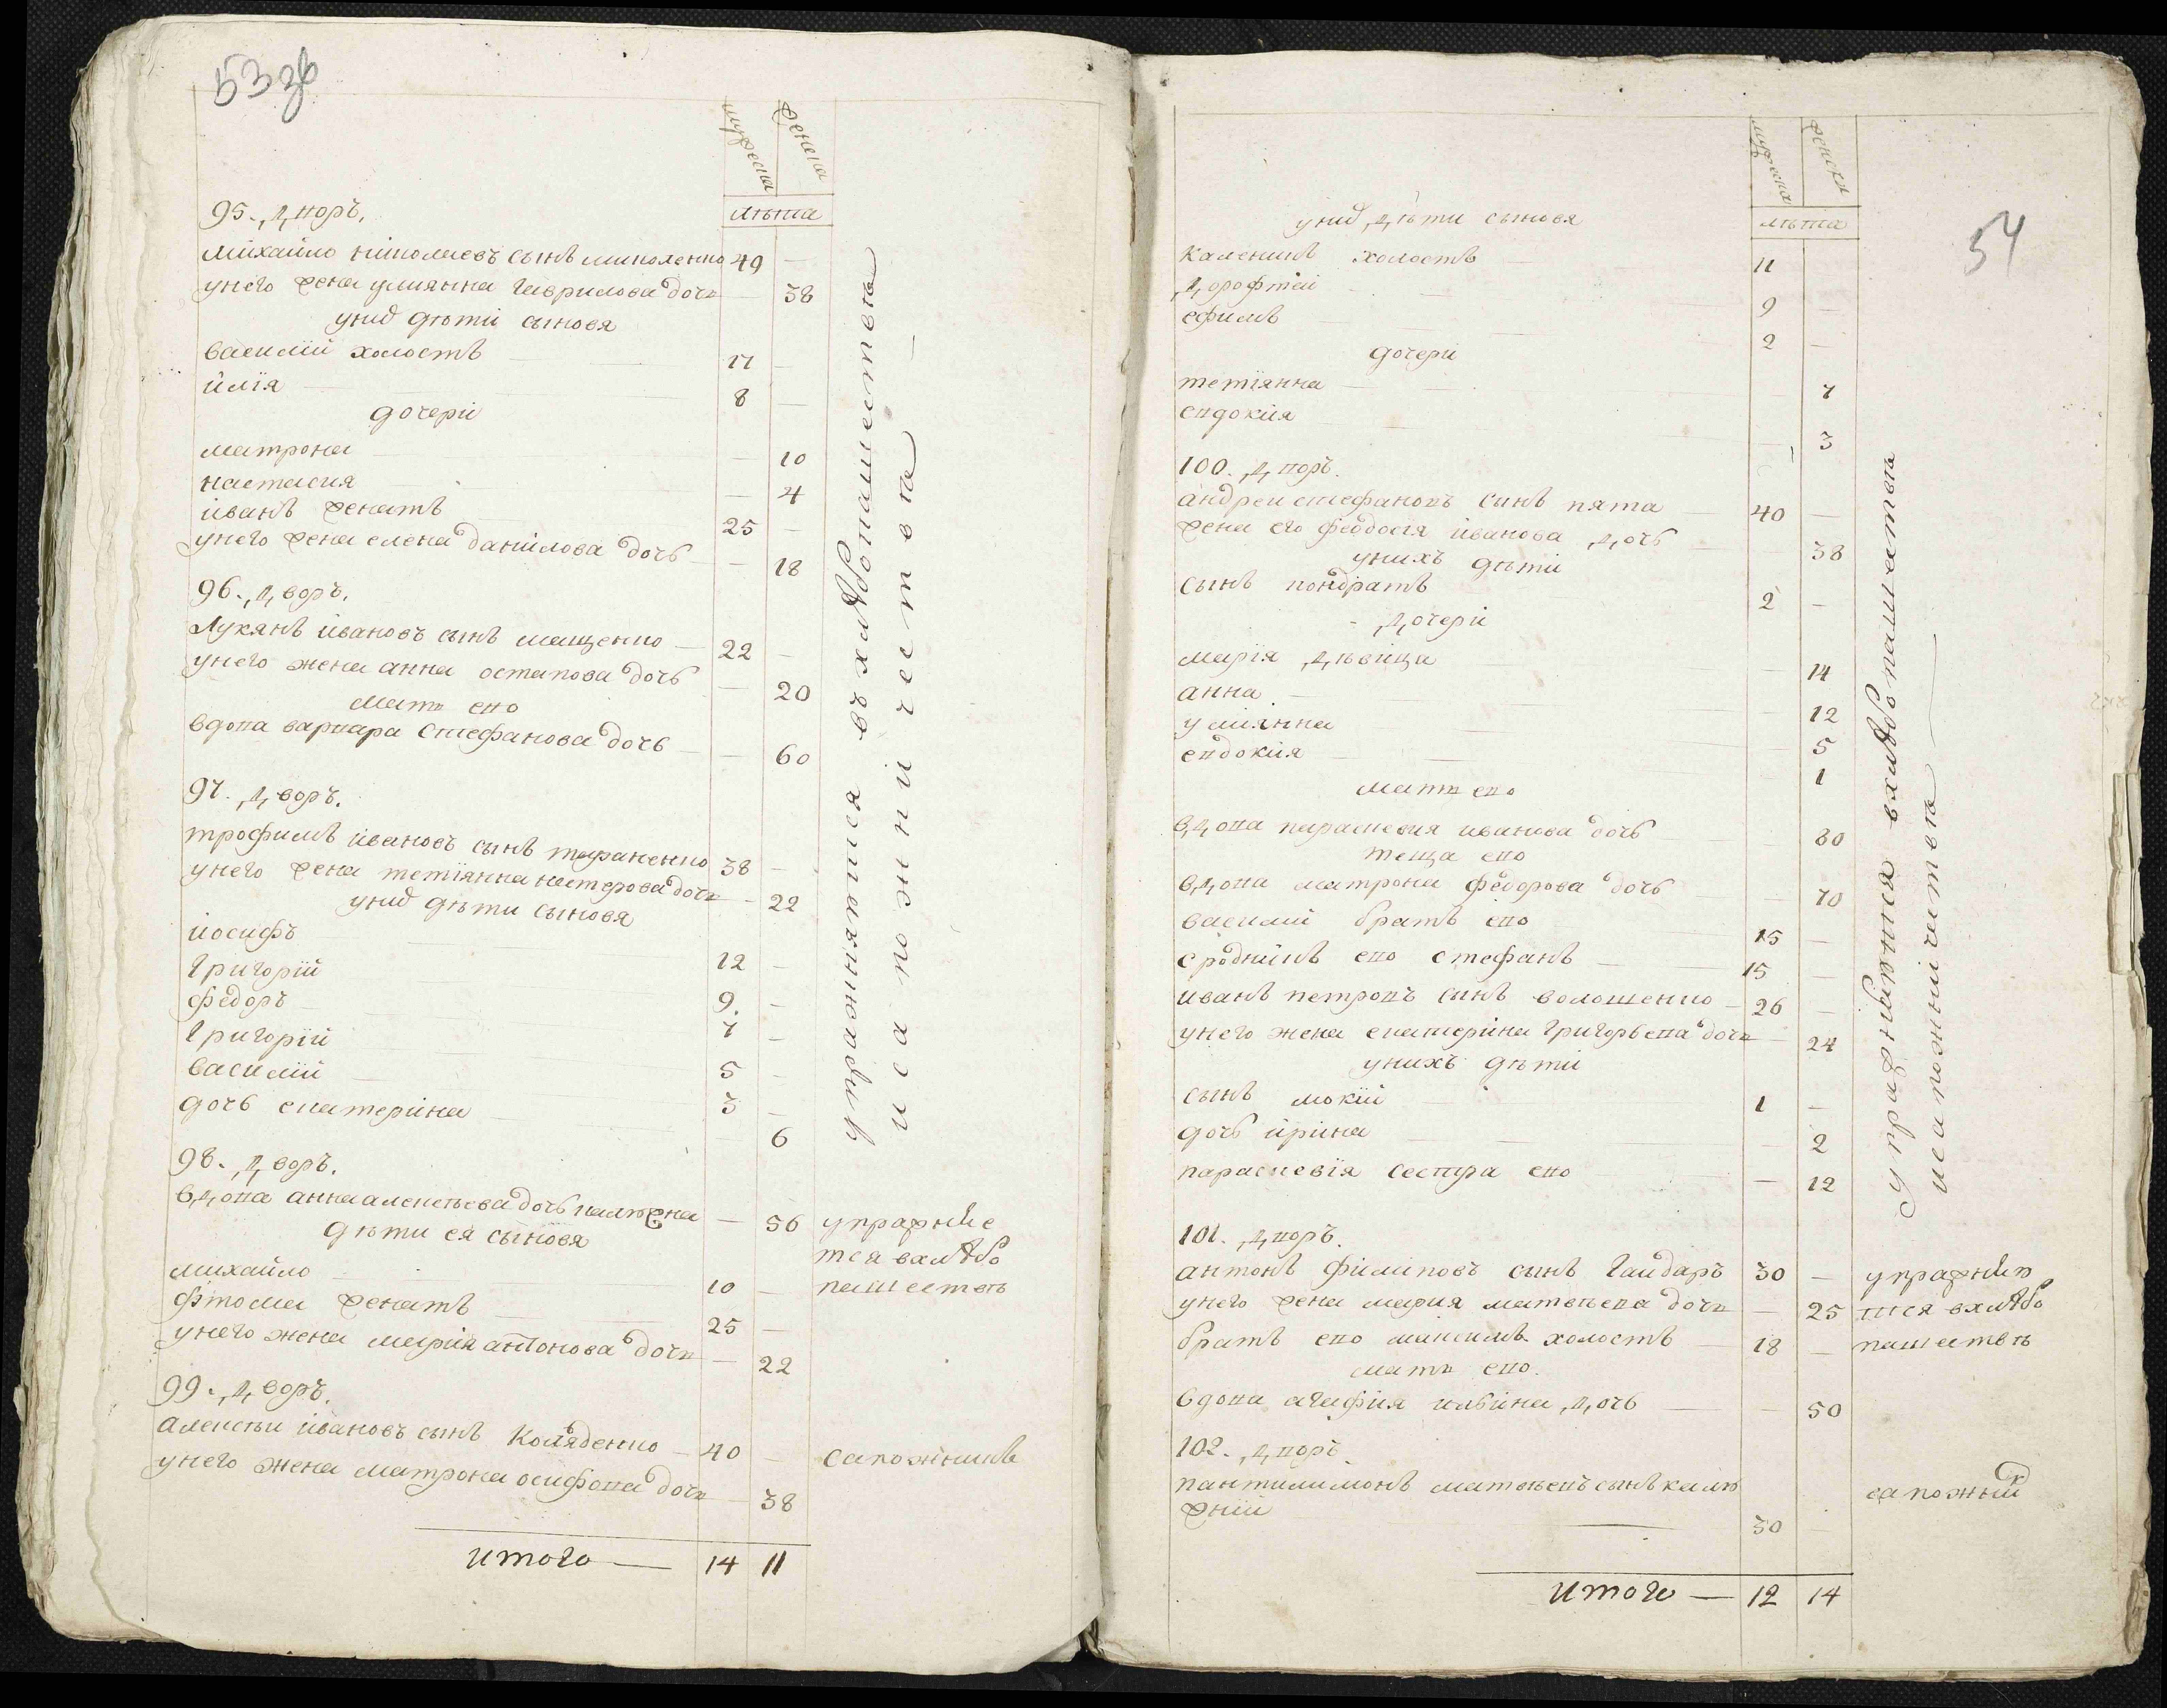 53 зв
мужеска
женска
лѣта
95. дворъ.
михайло николаевъ сынъ миколенко 49 —
унего жена улиянна гаврилова дочь — 38
унихъ дѣти сыновя
василий холостъ 17 —
илїя 8 —
дочери
матрона — 10
настасия — 4
иванъ женатъ 25 —
унего жена елена данилова дочь — 18
96. дворъ.
Лукянъ ивановъ сынъ мащенко 22 —
унего жена анна остапова дочь — 20
мать ево
вдова варвара стефанова дочь — 60
97. дворъ.
трофимъ ивановъ сынъ тараненко 38 —
унего жена тетїянна нестерова дочь — 22
унихъ дѣти сыновя
иосифъ 12 —
григорїй 9 —
федоръ 7 —
григорїй 5 —
василїй 3 —
дочь екатерина 6
98. дворъ.
вдова анна алексѣева дочь калѣжна — 56
дѣти ея сыновя
михайло 10 —
фтома женатъ 25 —
унего жена мария антонова дочь — 22
99. дворъ.
алексѣи ивановъ сынъ Коляденко 40 —
унего жена матрона осифова дочь — 38
итого — 14 11
упражняются въ хлѣбопашествѣ
и сапожничествѣ
упражнѣе
тся вхлѣбо
пашествѣ
сапожникъ
54
мужеска
женска
лѣта
унихъ дѣти сыновя
каленикъ холостъ 11
дорофтей 9 —
ефимъ 2 —
дочери
тетїянна 7
евдокия — 3
100. дворъ.
андреи стефановъ сынъ пята 40 —
жена его феодосїя иванова дочь 38
унихъ дѣти
сынъ кондратъ 2 —
дочери
марїя дѣвица — 14
анна — 12
улиянна — 5
евдокия — 1
мать ево
вдова параскевия иванова дочь 80
теща ево
вдова матрона федорова дочь — 70
василий братъ ево 15 —
сродникъ ево стефанъ 15 —
иванъ петровъ сынъ волошенко 26 —
унего жена екатерина григорьева дочь 24
унихъ дѣти
сынъ мокїй 1 —
дочь ирина — 2
параскевїя сестра ево — 12
101. дворъ.
антонъ филиповъ сынъ гайдаръ 30 —
унего жена мария матвѣева дочь — 25
братъ ево максимъ холостъ 18 —
мать ево.
вдова агафия илвина дочь — 50
102. дворъ.
пантилимонъ матвѣевъ сынъ калѣ
жний 30 —
итого — 12 14
упражнѣются вхлѣбопашествѣ
исапожничествѣ
упражнѣю
тся вхлѣбо
пашествѣ
сапожник